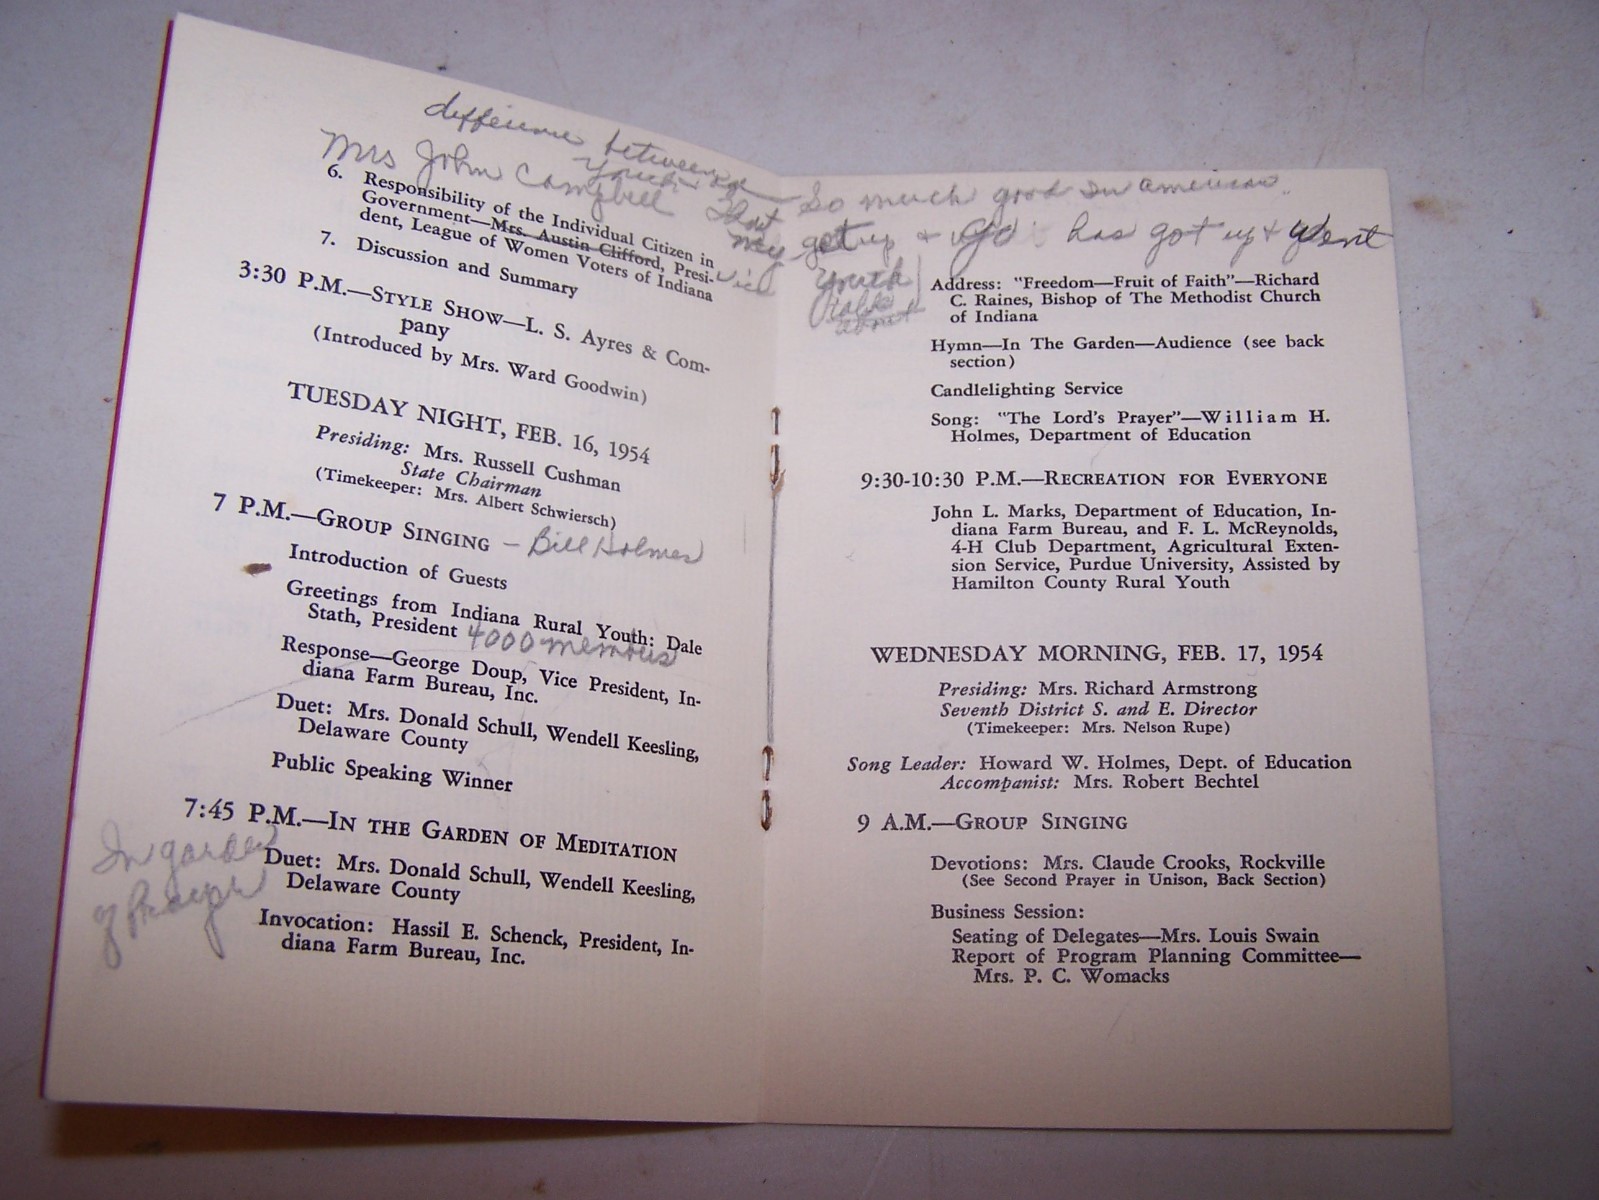 difference between
Mrs John Campbell youth + age
6. Responsibility of the Individual Citizen in
Government—Mrs. Austin Clifford, Presi-
dent, League of Women Voters of Indiana
7. Discussion and Summary
3:30 P.M.—STYLE SHOW—L. S. Ayres & Com-
pany
(Introduced by Mrs. Ward Goodwin)
TUESDAY NIGHT, FEB. 16, 1954
Presiding: Mrs. Russell Cushman
State Chairman
(Timekeeper: Mrs. Albert Schwiersch)
7 P.M.—GROUP SINGING – Bill Holmes
Introduction of Guests
Greetings from Indiana Rural Youth: Dale
Stath, President 4000 members
Response—George Doup, Vice President, In-
diana Farm Bureau, Inc.
Duet: Mrs. Donald Schull, Wendell Keesling,
Delaware County
Public Speaking Winner
7:45 P.M.—IN THE GARDEN OF MEDITATION
In garden
of Prayer
Duet: Mrs. Donald Schull, Wendell Keesling,
Delaware County
Invocation: Hassil E. Schenck, President, In-
diana Farm Bureau, Inc.
So much good in american
get up & go has got up & went
youth
talks
about
Address: "Freedom—Fruit of Faith"—Richard
C. Raines, Bishop of The Methodist Church
of Indiana
Hymn—In The Garden—Audience (see back
section)
Candlelighting Service
Song: "The Lord's Prayer"—William H.
Holmes, Department of Education
9:30-10:30 P.M.—RECREATION FOR EVERYONE
John L. Marks, Department of Education, In-
diana Farm Bureau, and F. L. McReynolds,
4-H Club Department, Agricultural Exten-
sion Service, Purdue University, Assisted by
Hamilton County Rural Youth
WEDNESDAY MORNING, FEB. 17, 1954
Presiding: Mrs. Richard Armstrong
Seventh District S. and E. Director
(Timekeeper: Mrs. Nelson Rupe)
Song Leader: Howard W. Holmes, Dept. of Education
Accompanist: Mrs. Robert Bechtel
9 A.M.—GROUP SINGING
Devotions: Mrs. Claude Crooks, Rockville
(See Second Prayer in Unison, Back Section)
Business Session:
Seating of Delegates—Mrs. Louis Swain
Report of Program Planning Committee—
Mrs. P. C. Womacks